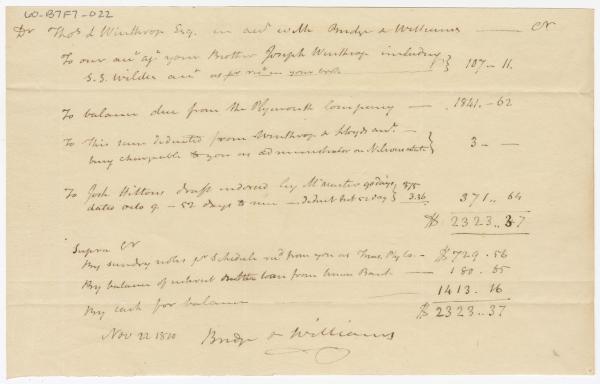 60-B7F7-022
Dr Thos L Winthrop Esq. in act with Bridge & Williams — Cr
To our act agt your Brother Joseph Winthrop including
S. S. Wilder act as 107 - 11.
To balance due from the Plymouth Company — 1841. - 62
To This sum deducted from Winthrop & Lloyds act. —
being chargeable to you as administrator on estate 3 — —
To Josh Hiltons draft indorsed by 90 days 375
dated Octo 9 — 52 days to run — deduct 52 day 3.36 371.. 64
$ 2323.. 37
Supra Cr
By sundry notes pr Schedule recd from you as Co — $ 729. 56
By balance of interest loan from Union Bank — 180. 65
By cash for balance 1413. 16
$ 2323.. 37
Nov 22 1810 Bridge & Williams